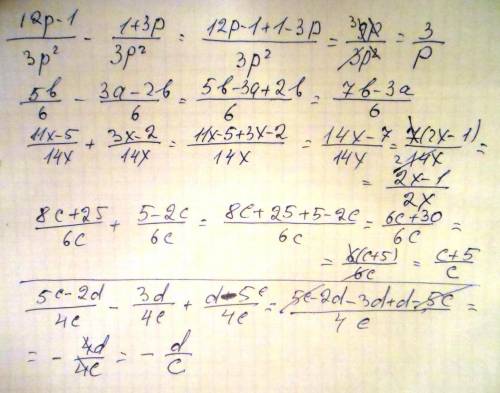 (12p-1)/(3p²) - (1+3p)/(3p²) = (12p-1+1-3p)/(3p²) = 9p/(3p²) = 3/p
5b/6 - (3a-2b)/6 = (5b-3a+2b)/6 = (7b-3a)/6
(11x-5)/(14x) + (3x-2)/(14x) = (11x-5+3x-2)/(14x) = (14x-7)/(14x) = 7(2x-1)/(14x) =
= (2x-1)/(2x)
(8c+25)/(6c) + (5-2c)/(6c) = (8c+25+5-2c)/(6c) = (6c+30)/(6c) =
= 6(c+5)/(6c) = (c+5)/c
(5c-2d)/(4c) - 3d/(4c) + (d-5c)/(4c) = (5c-2d-3d+d-5c)/(4c) =
= - 4d/(4c) = - d/c